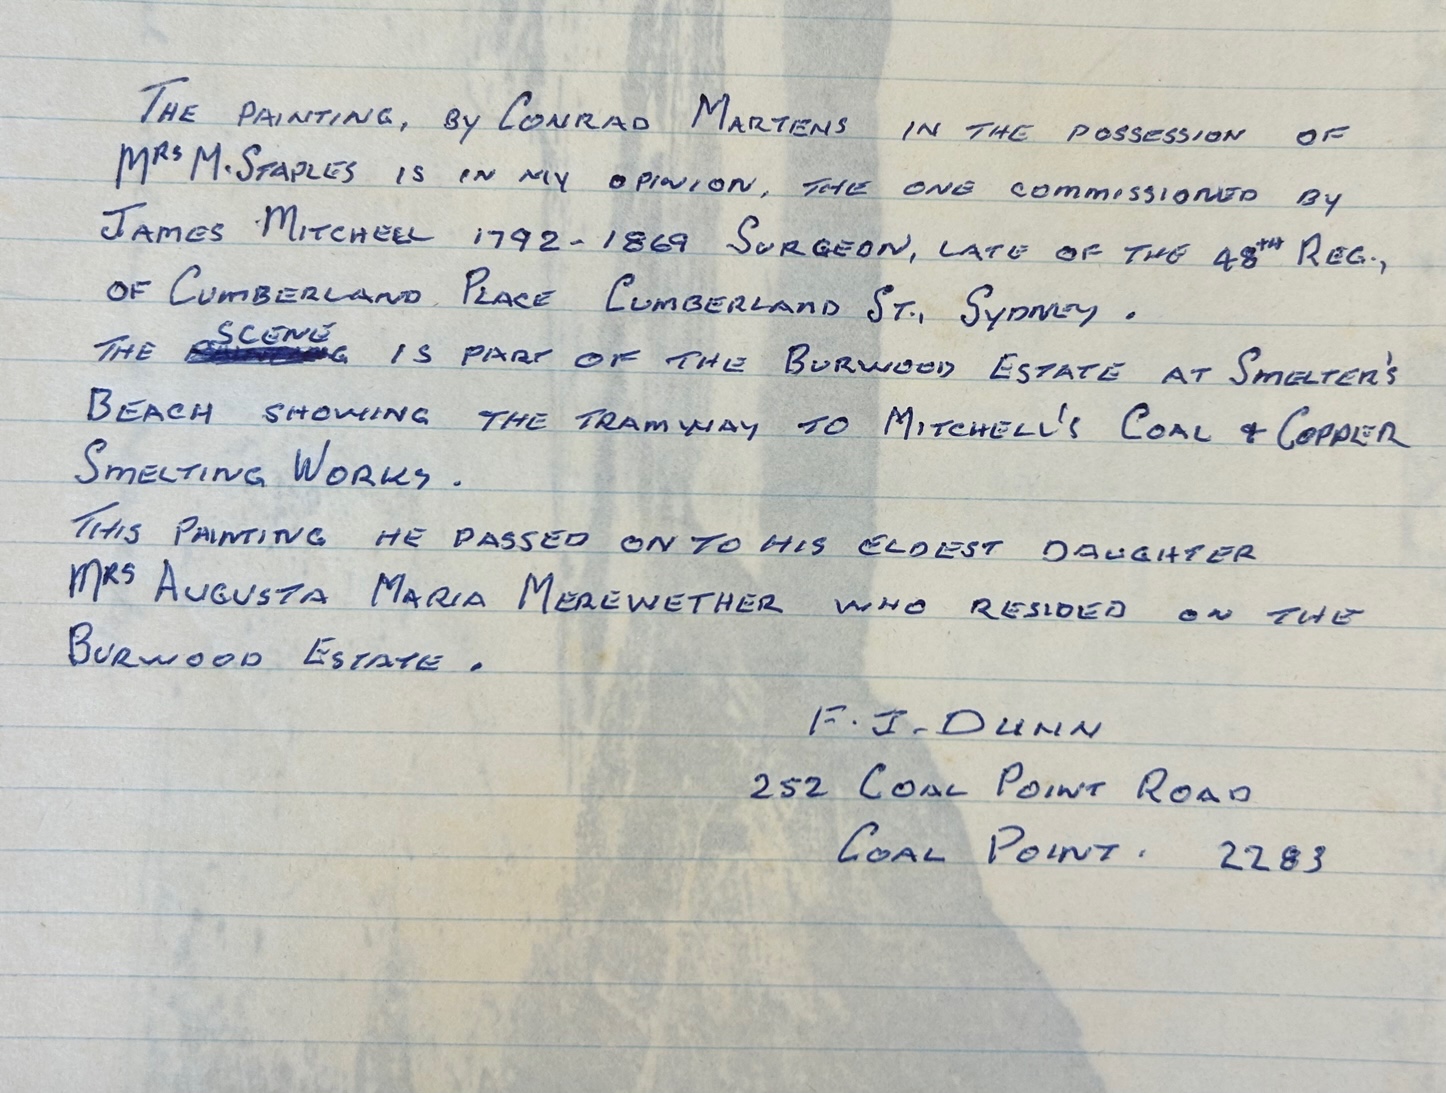 THE PAINTING, BY CONRAD MARTENS IN THE POSSESSION OF
MRS M. STAPLES IS IN MY OPINION, THE ONE COMMISSIONED BY
JAMES MITCHELL 1792-1869 SURGEON, LATE OF THE 48TH REG.,
OF CUMBERLAND PLACE CUMBERLAND ST., SYDNEY.
THE SCENE IS PART OF THE BURWOOD ESTATE AT SMELTER'S
BEACH SHOWING THE TRAMWAY TO MITCHELL'S COAL & COPPER
SMELTING WORKS.
THIS PAINTING HE PASSED ON TO HIS ELDEST DAUGHTER
MRS AUGUSTA MARIA MEREWETHER WHO RESIDED ON THE
BURWOOD ESTATE.
F. J. DUNN
252 COAL POINT ROAD
COAL POINT. 2283